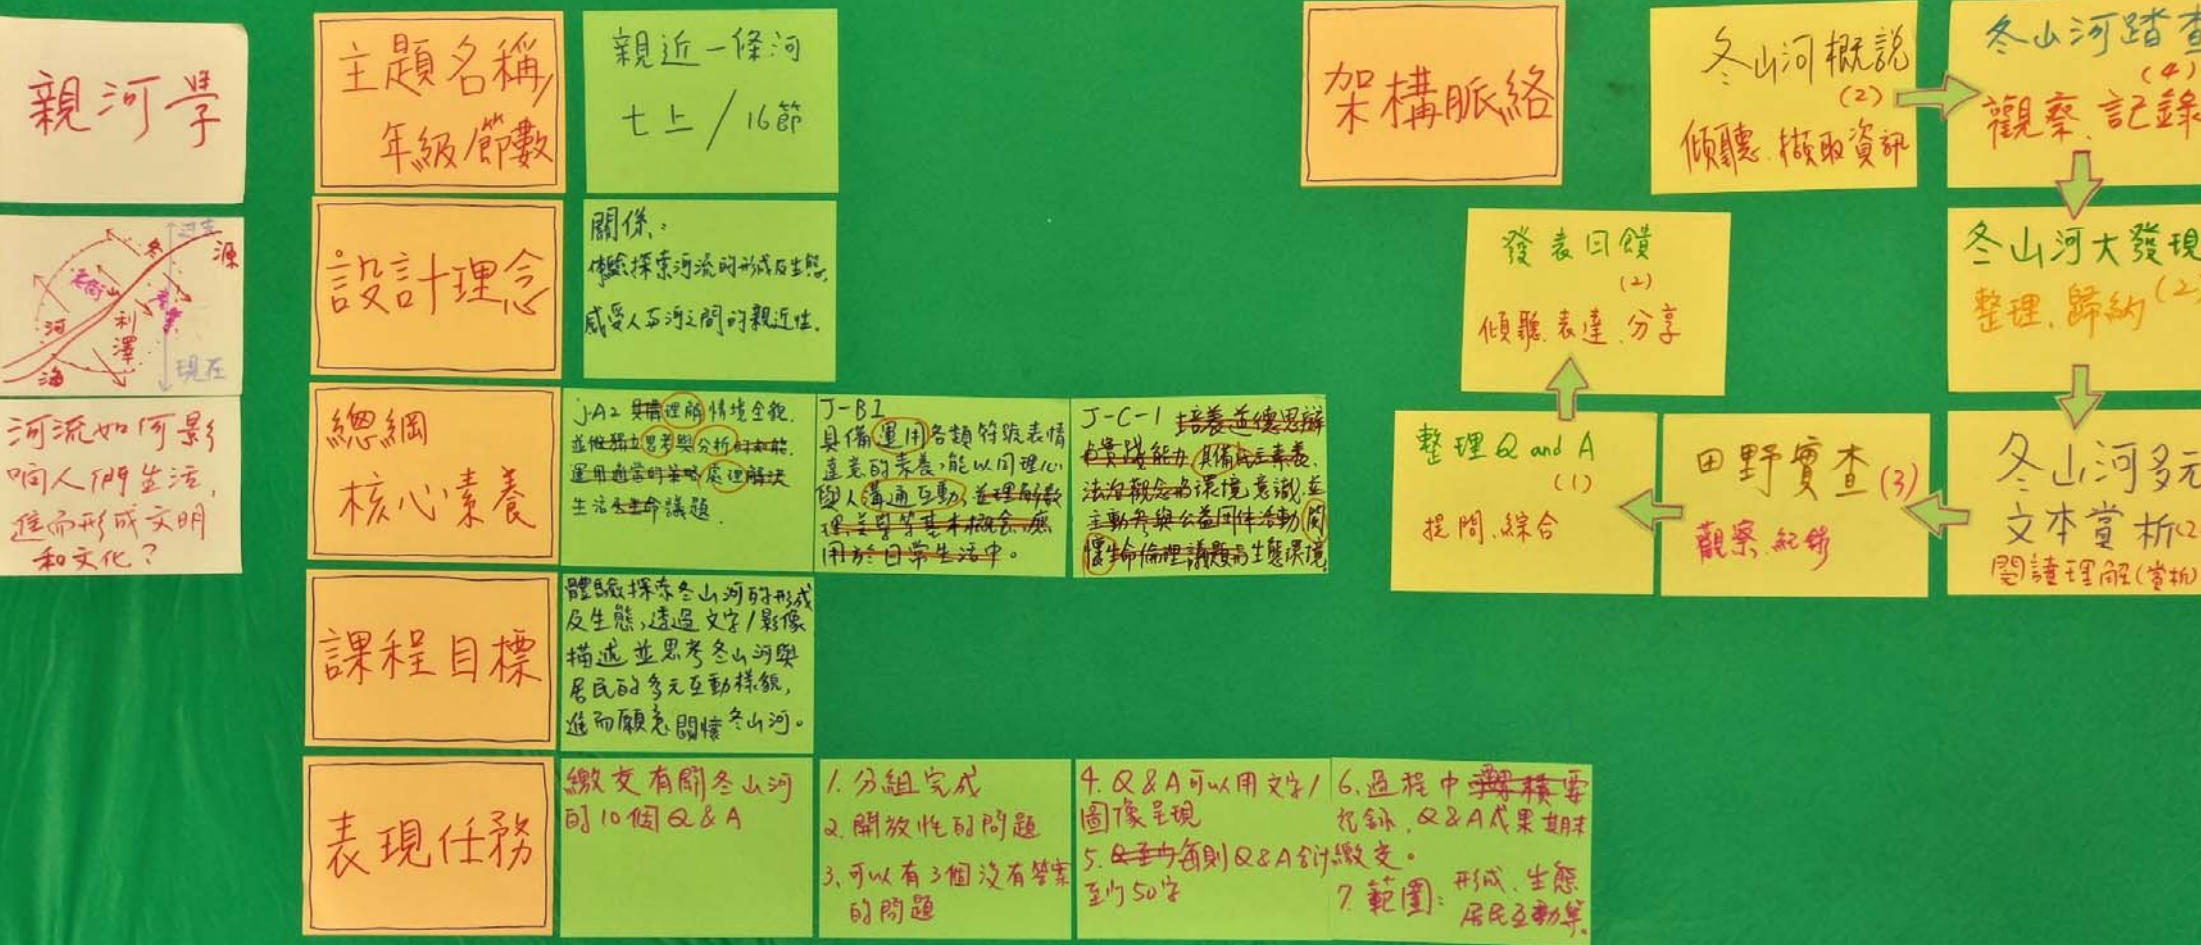 親河學
源
冬
山
河
利
澤
海
現在
河流如何影
响人們生活,
進而形成文明
和文化?
主題名稱/
年級/節數
親近一條河
七上/16節
設計理念
關係:
體驗探索河流的形成及生態,
感受人与河之間的親近性.
總綱
核心素養
j-A2 具備理解情境全貌,
並做獨立思考與分析的知能,
運用適當的策略處理解決
生活及生命議題.
J-B1
具備運用各類符號表情
達意的素養,能以同理心
與人溝通互動,並理解數
理、美學等基本概念,應
用於日常生活中。
J-C-1 培養道德思辯
與實踐能力,具備民主素養、
法治觀念與環境意識,並
主動參與公益团体活動,関
懷生命倫理議題與生態環境.
課程目標
體驗探索冬山河的形成
及生態,透過文字/影像
描述並思考冬山河與
居民的多元互動樣貌,
進而願意關懷冬山河。
表現任務
繳交有關冬山河
的10個Q&A
1.分組完成
2.開放性的問題
3.可以有3個沒有答案
的問題
4.Q&A可以用文字/
圖像呈現
5.Q至少每則Q&A合計
至少50字
6.過程中要
紀錄,Q&A成果期末
繳交。
7.範圍:形成、生態
居民互動等。
架構脈絡
冬山河概說
(2)
傾聽、擷取資訊
冬山河踏查
(4)
觀察、記錄
冬山河大發現
整理、歸納(2)
冬山河多元
文本賞析(2
閱讀理解(賞析)
田野實查(3)
觀察、紀錄
整理Q and A
(1)
提問、綜合
發表回饋
(2)
傾聽、表達、分享